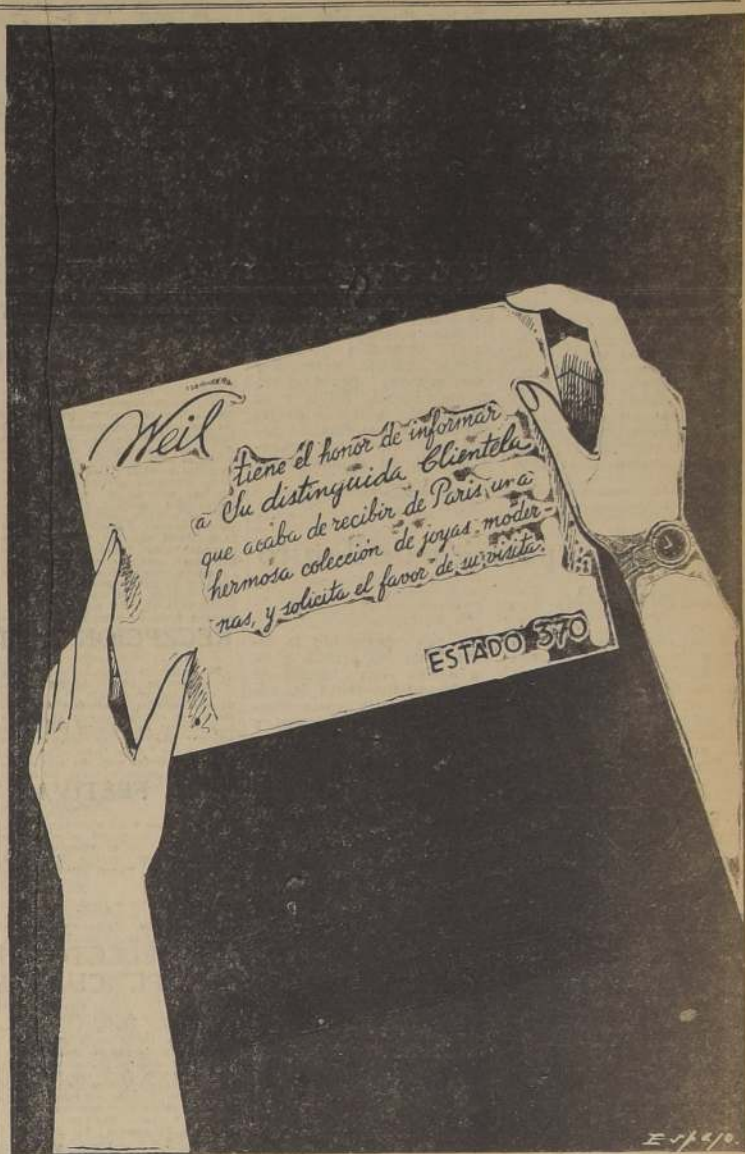 Weil
tiene el honor de informar
a Su distinguida Clientela
que acaba de recibir de Paris una
hermosa colección de joyas moder-
nas, y solicita el favor de su visita.
ESTADO 370
Espejo.